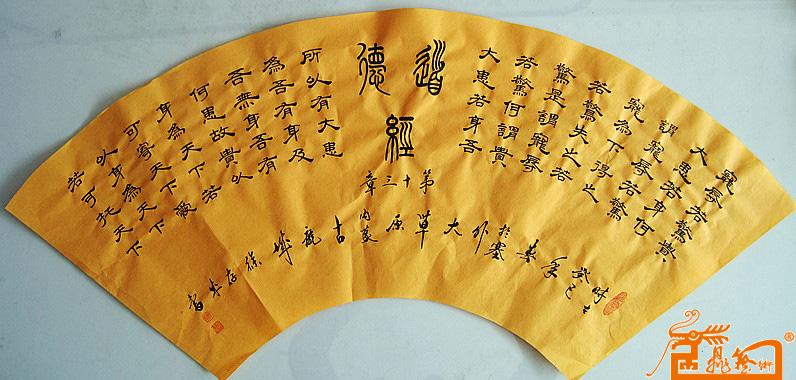 寵辱若驚貴
大患若身何
謂寵辱若驚
寵為下得之
若驚失之若
驚是謂寵辱
若驚何謂貴
大患若身吾
道德經
第十三章
所以有大患
為吾有身及
吾無身吾有
何患故貴以
身為天下若
可寄天下愛
以身為天下
若可托天下
時在癸巳季春於塞外大草原內蒙古龍城徐存書
藝術®